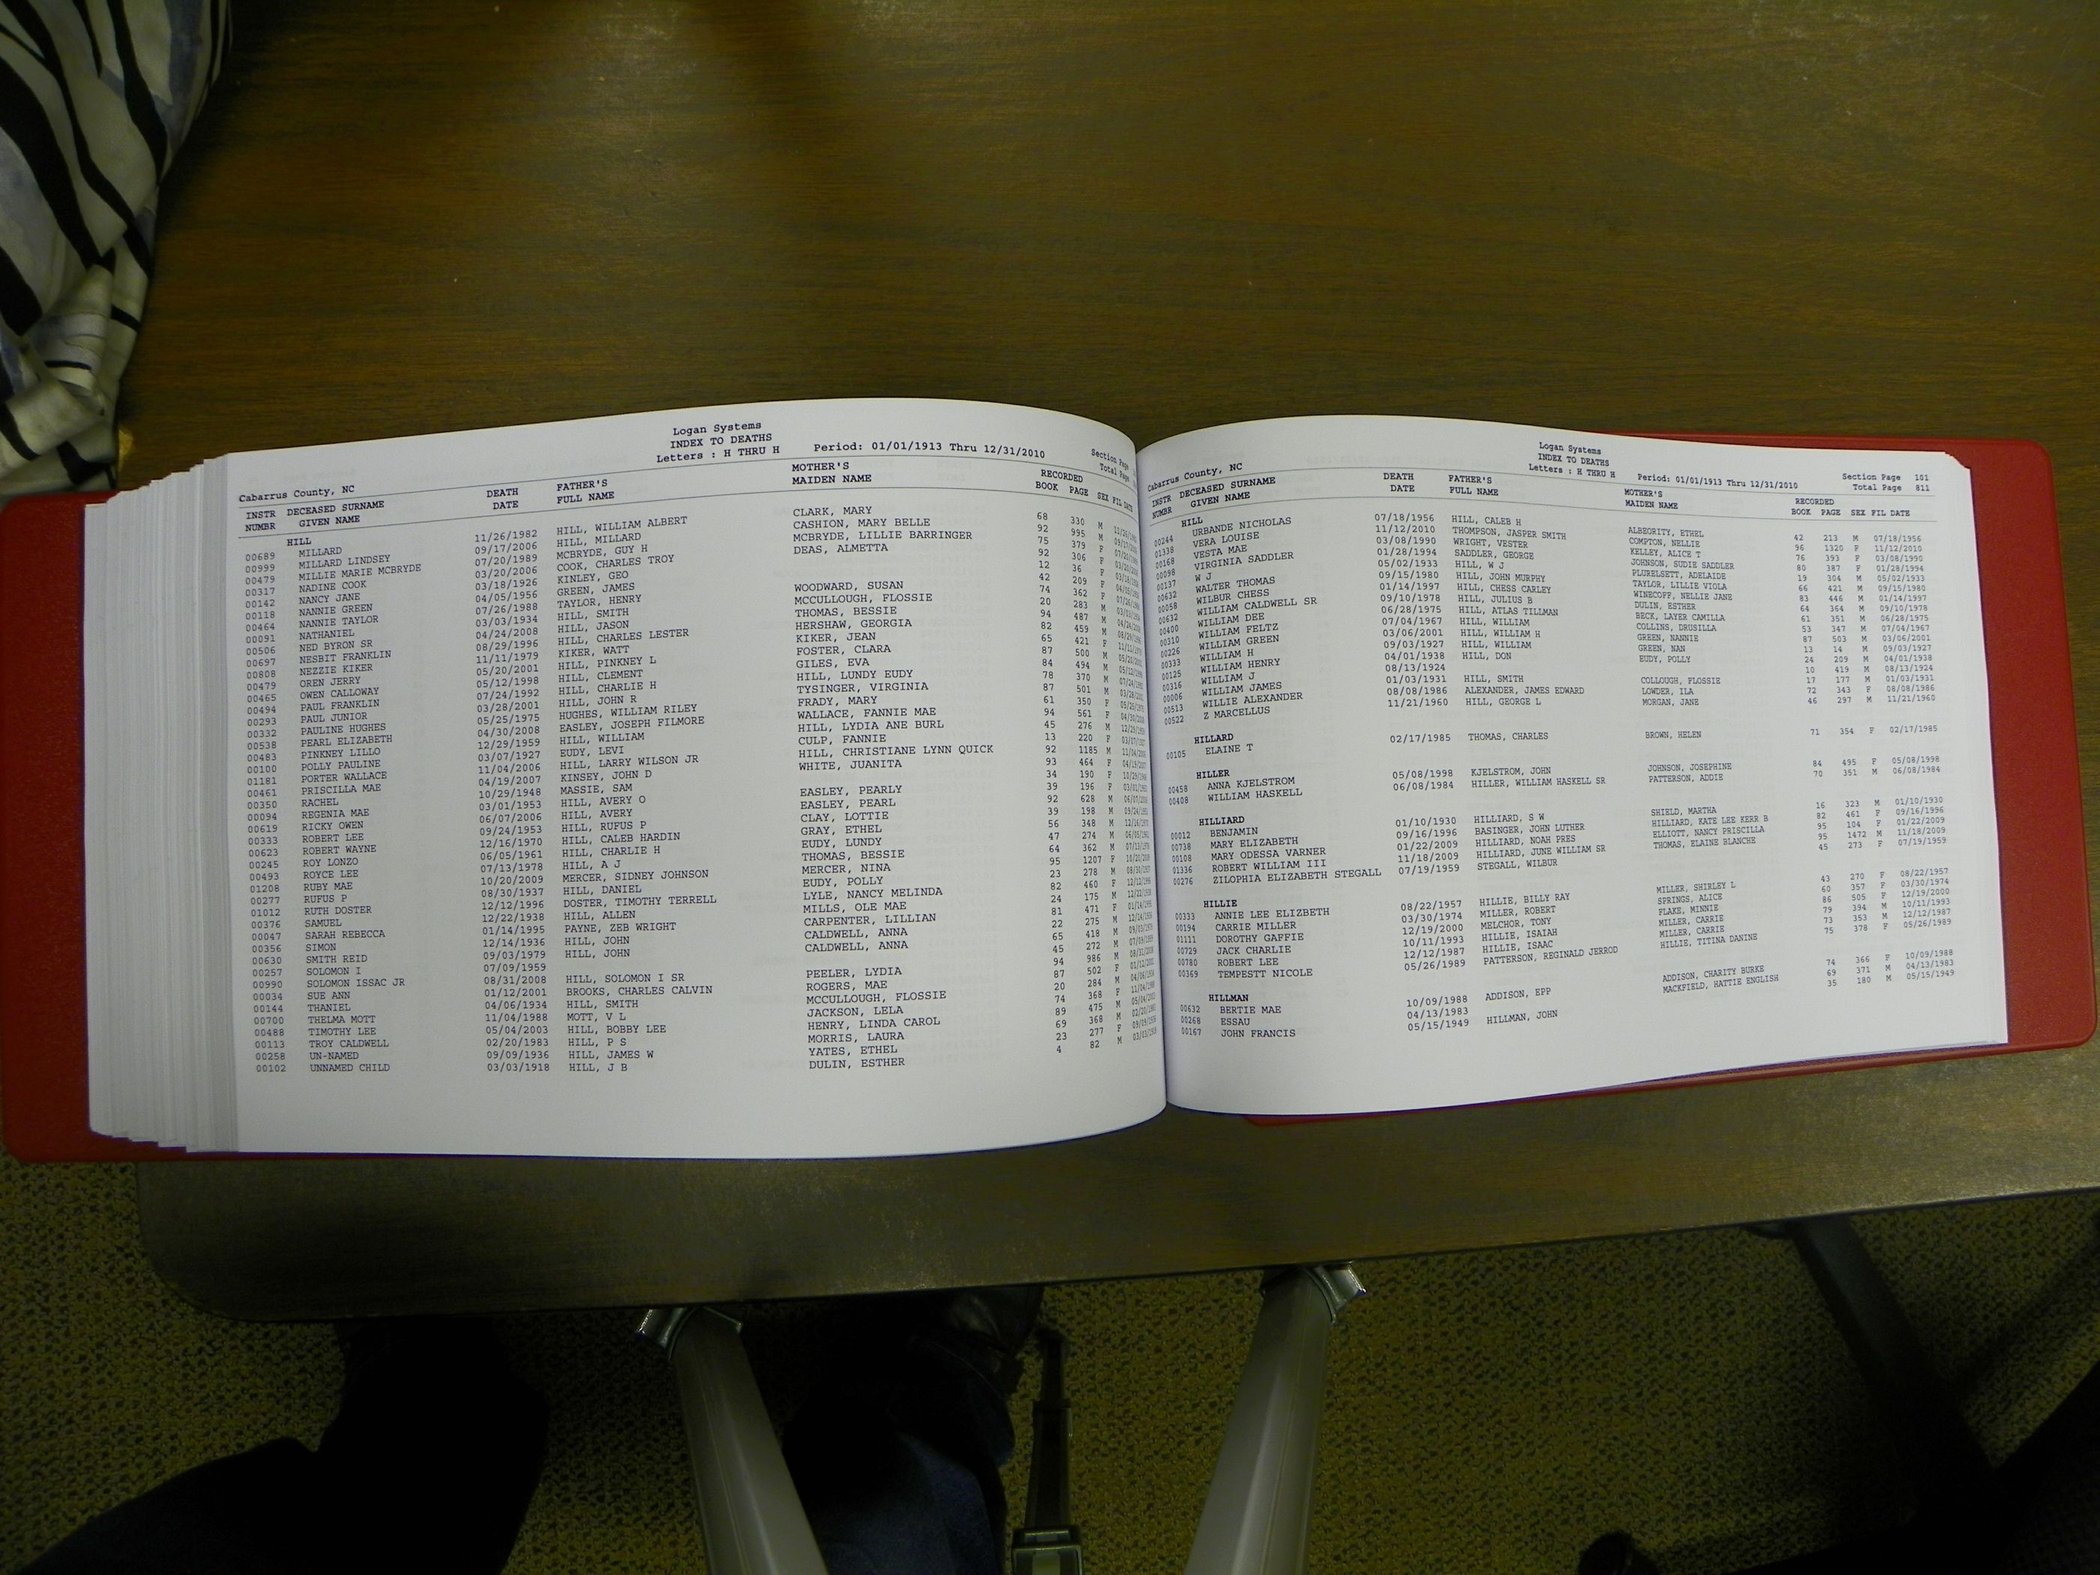 Logan Systems
INDEX TO DEATHS
Cabarrus County, NC Letters : H THRU H Period: 01/01/1913 Thru 12/31/2010 Section Page
Total Page
INSTR NUMBR DECEASED SURNAME GIVEN NAME DEATH DATE FATHER'S FULL NAME MOTHER'S MAIDEN NAME RECORDED BOOK PAGE SEX FIL DATE
HILL
00689 MILLARD 11/26/1982 HILL, WILLIAM ALBERT CLARK, MARY 68 330 M
00999 MILLARD LINDSEY 09/17/2006 HILL, MILLARD CASHION, MARY BELLE 92 995 M
00479 MILLIE MARIE MCBRYDE 07/20/1989 MCBRYDE, GUY H MCBRYDE, LILLIE BARRINGER 75 379 F
00317 NADINE COOK 03/20/2006 COOK, CHARLES TROY DEAS, ALMETTA 92 306 F
00142 NANCY JANE 03/18/1926 KINLEY, GEO 12 36 F
00118 NANNIE GREEN 04/05/1956 GREEN, JAMES 42 209 F
00464 NANNIE TAYLOR 07/26/1988 TAYLOR, HENRY WOODWARD, SUSAN 74 362 F
00091 NATHANIEL 03/03/1934 HILL, SMITH MCCULLOUGH, FLOSSIE 20 283 M
00506 NED BYRON SR 04/24/2008 HILL, JASON THOMAS, BESSIE 94 487 M
00697 NESBIT FRANKLIN 08/29/1996 HILL, CHARLES LESTER HERSHAW, GEORGIA 82 459 M
00808 NEZZIE KIKER 11/11/1979 KIKER, WATT KIKER, JEAN 65 421 F
00479 OREN JERRY 05/20/2001 HILL, PINKNEY L FOSTER, CLARA 87 500 M
00465 OWEN CALLOWAY 05/12/1998 HILL, CLEMENT GILES, EVA 84 494 M
00494 PAUL FRANKLIN 07/24/1992 HILL, CHARLIE H HILL, LUNDY EUDY 78 370 M
00293 PAUL JUNIOR 03/28/2001 HILL, JOHN R TYSINGER, VIRGINIA 87 501 M
00332 PAULINE HUGHES 05/25/1975 HUGHES, WILLIAM RILEY FRADY, MARY 61 350 F
00538 PEARL ELIZABETH 04/30/2008 EASLEY, JOSEPH FILMORE WALLACE, FANNIE MAE 94 561 F
00483 PINKNEY LILLO 12/29/1959 HILL, WILLIAM HILL, LYDIA ANE BURL 45 276 M
00100 POLLY PAULINE 03/07/1927 EUDY, LEVI CULP, FANNIE 13 220 F
01181 PORTER WALLACE 11/04/2006 HILL, LARRY WILSON JR HILL, CHRISTIANE LYNN QUICK 92 1185 M
00461 PRISCILLA MAE 04/19/2007 KINSEY, JOHN D WHITE, JUANITA 93 464 F
00350 RACHEL 10/29/1948 MASSIE, SAM 34 190 F
00094 REGENIA MAE 03/01/1953 HILL, AVERY O EASLEY, PEARLY 39 196 F
00619 RICKY OWEN 06/07/2006 HILL, AVERY EASLEY, PEARL 92 628 M
00333 ROBERT LEE 09/24/1953 HILL, RUFUS P CLAY, LOTTIE 39 198 M
00623 ROBERT WAYNE 12/16/1970 HILL, CALEB HARDIN GRAY, ETHEL 56 348 M
00245 ROY LONZO 06/05/1961 HILL, CHARLIE H EUDY, LUNDY 47 274 M
00493 ROYCE LEE 07/13/1978 HILL, A J THOMAS, BESSIE 64 362 M
01208 RUBY MAE 10/20/2009 MERCER, SIDNEY JOHNSON MERCER, NINA 95 1207 F
00277 RUFUS P 08/30/1937 HILL, DANIEL EUDY, POLLY 23 278 M
01012 RUTH DOSTER 12/12/1996 DOSTER, TIMOTHY TERRELL LYLE, NANCY MELINDA 82 460 F
00376 SAMUEL 12/22/1938 HILL, ALLEN MILLS, OLE MAE 24 175 M
00047 SARAH REBECCA 01/14/1995 PAYNE, ZEB WRIGHT CARPENTER, LILLIAN 81 471 F
00356 SIMON 12/14/1936 HILL, JOHN CALDWELL, ANNA 22 275 M
00630 SMITH REID 09/03/1979 HILL, JOHN CALDWELL, ANNA 65 418 M
00257 SOLOMON I 07/09/1959 45 272 M
00990 SOLOMON ISSAC JR 08/31/2008 HILL, SOLOMON I SR PEELER, LYDIA 94 986 M
00034 SUE ANN 01/12/2001 BROOKS, CHARLES CALVIN ROGERS, MAE 87 502 F
00144 THANIEL 04/06/1934 HILL, SMITH MCCULLOUGH, FLOSSIE 20 284 M
00700 THELMA MOTT 11/04/1988 MOTT, V L JACKSON, LELA 74 368 F
00488 TIMOTHY LEE 05/04/2003 HILL, BOBBY LEE HENRY, LINDA CAROL 89 475 M
00113 TROY CALDWELL 02/20/1983 HILL, P S MORRIS, LAURA 69 368 M
00258 UN-NAMED 09/09/1936 HILL, JAMES W YATES, ETHEL 23 277 F
00102 UNNAMED CHILD 03/03/1918 HILL, J B DULIN, ESTHER 4 82 M
Logan Systems
INDEX TO DEATHS
Cabarrus County, NC Letters : H THRU H Period: 01/01/1913 Thru 12/31/2010 Section Page 101
Total Page 811
INSTR NUMBR DECEASED SURNAME GIVEN NAME DEATH DATE FATHER'S FULL NAME MOTHER'S MAIDEN NAME RECORDED BOOK PAGE SEX FIL DATE
HILL
00244 URBANDE NICHOLAS 07/18/1956 HILL, CALEB H ALBEORITY, ETHEL 42 213 M 07/18/1956
01338 VERA LOUISE 11/12/2010 THOMPSON, JASPER SMITH COMPTON, NELLIE 96 1320 F 11/12/2010
00168 VESTA MAE 03/08/1990 WRIGHT, VESTER KELLEY, ALICE T 76 393 F 03/08/1990
00098 VIRGINIA SADDLER 01/28/1994 SADDLER, GEORGE JOHNSON, SUDIE SADDLER 80 387 F 01/28/1994
00137 W J 05/02/1933 HILL, W J PLURELSETT, ADELAIDE 19 304 M 05/02/1933
00632 WALTER THOMAS 09/15/1980 HILL, JOHN MURPHY TAYLOR, LILLIE VIOLA 66 421 M 09/15/1980
00058 WILBUR CHESS 01/14/1997 HILL, CHESS CARLEY WINECOFF, NELLIE JANE 83 446 M 01/14/1997
00632 WILLIAM CALDWELL SR 09/10/1978 HILL, JULIUS B DULIN, ESTHER 64 364 M 09/10/1978
00400 WILLIAM DEE 06/28/1975 HILL, ATLAS TILLMAN BECK, LAYER CAMILLA 61 351 M 06/28/1975
00310 WILLIAM FELTZ 07/04/1967 HILL, WILLIAM COLLINS, DRUSILLA 53 347 M 07/04/1967
00226 WILLIAM GREEN 03/06/2001 HILL, WILLIAM H GREEN, NANNIE 87 503 M 03/06/2001
00333 WILLIAM H 09/03/1927 HILL, WILLIAM GREEN, NAN 13 14 M 09/03/1927
00125 WILLIAM HENRY 04/01/1938 HILL, DON EUDY, POLLY 24 209 M 04/01/1938
00316 WILLIAM J 08/13/1924 10 419 M 08/13/1924
00006 WILLIAM JAMES 01/03/1931 HILL, SMITH COLLOUGH, FLOSSIE 17 177 M 01/03/1931
00513 WILLIE ALEXANDER 08/08/1986 ALEXANDER, JAMES EDWARD LOWDER, ILA 72 343 F 08/08/1986
00522 Z MARCELLUS 11/21/1960 HILL, GEORGE L MORGAN, JANE 46 297 M 11/21/1960
HILLARD
00105 ELAINE T 02/17/1985 THOMAS, CHARLES BROWN, HELEN 71 354 F 02/17/1985
HILLER
00458 ANNA KJELSTROM 05/08/1998 KJELSTROM, JOHN JOHNSON, JOSEPHINE 84 495 F 05/08/1998
00408 WILLIAM HASKELL 06/08/1984 HILLER, WILLIAM HASKELL SR PATTERSON, ADDIE 70 351 M 06/08/1984
HILLIARD
00012 BENJAMIN 01/10/1930 HILLIARD, S W SHIELD, MARTHA 16 323 M 01/10/1930
00738 MARY ELIZABETH 09/16/1996 BASINGER, JOHN LUTHER HILLIARD, KATE LEE KERR B 82 461 F 09/16/1996
00108 MARY ODESSA VARNER 01/22/2009 HILLIARD, NOAH PRES ELLIOTT, NANCY PRISCILLA 95 104 F 01/22/2009
01336 ROBERT WILLIAM III 11/18/2009 HILLIARD, JUNE WILLIAM SR THOMAS, ELAINE BLANCHE 95 1472 M 11/18/2009
00276 ZILOPHIA ELIZABETH STEGALL 07/19/1959 STEGALL, WILBUR 45 273 F 07/19/1959
HILLIE
00333 ANNIE LEE ELIZBETH 08/22/1957 HILLIE, BILLY RAY MILLER, SHIRLEY L 43 270 F 08/22/1957
00194 CARRIE MILLER 03/30/1974 MILLER, ROBERT SPRINGS, ALICE 60 357 F 03/30/1974
01111 DOROTHY GAFFIE 12/19/2000 MELCHOR, TONY FLAKE, MINNIE 86 505 F 12/19/2000
00729 JACK CHARLIE 10/11/1993 HILLIE, ISAIAH MILLER, CARRIE 79 394 M 10/11/1993
00780 ROBERT LEE 12/12/1987 HILLIE, ISAAC MILLER, CARRIE 73 353 M 12/12/1987
00369 TEMPESTT NICOLE 05/26/1989 PATTERSON, REGINALD JERROD HILLIE, TITINA DANINE 75 378 F 05/26/1989
HILLMAN
00632 BERTIE MAE 10/09/1988 ADDISON, EPP ADDISON, CHARITY BURKE 74 366 F 10/09/1988
00268 ESSAU 04/13/1983 MACKFIELD, HATTIE ENGLISH 69 371 M 04/13/1983
00167 JOHN FRANCIS 05/15/1949 HILLMAN, JOHN 35 180 M 05/15/1949